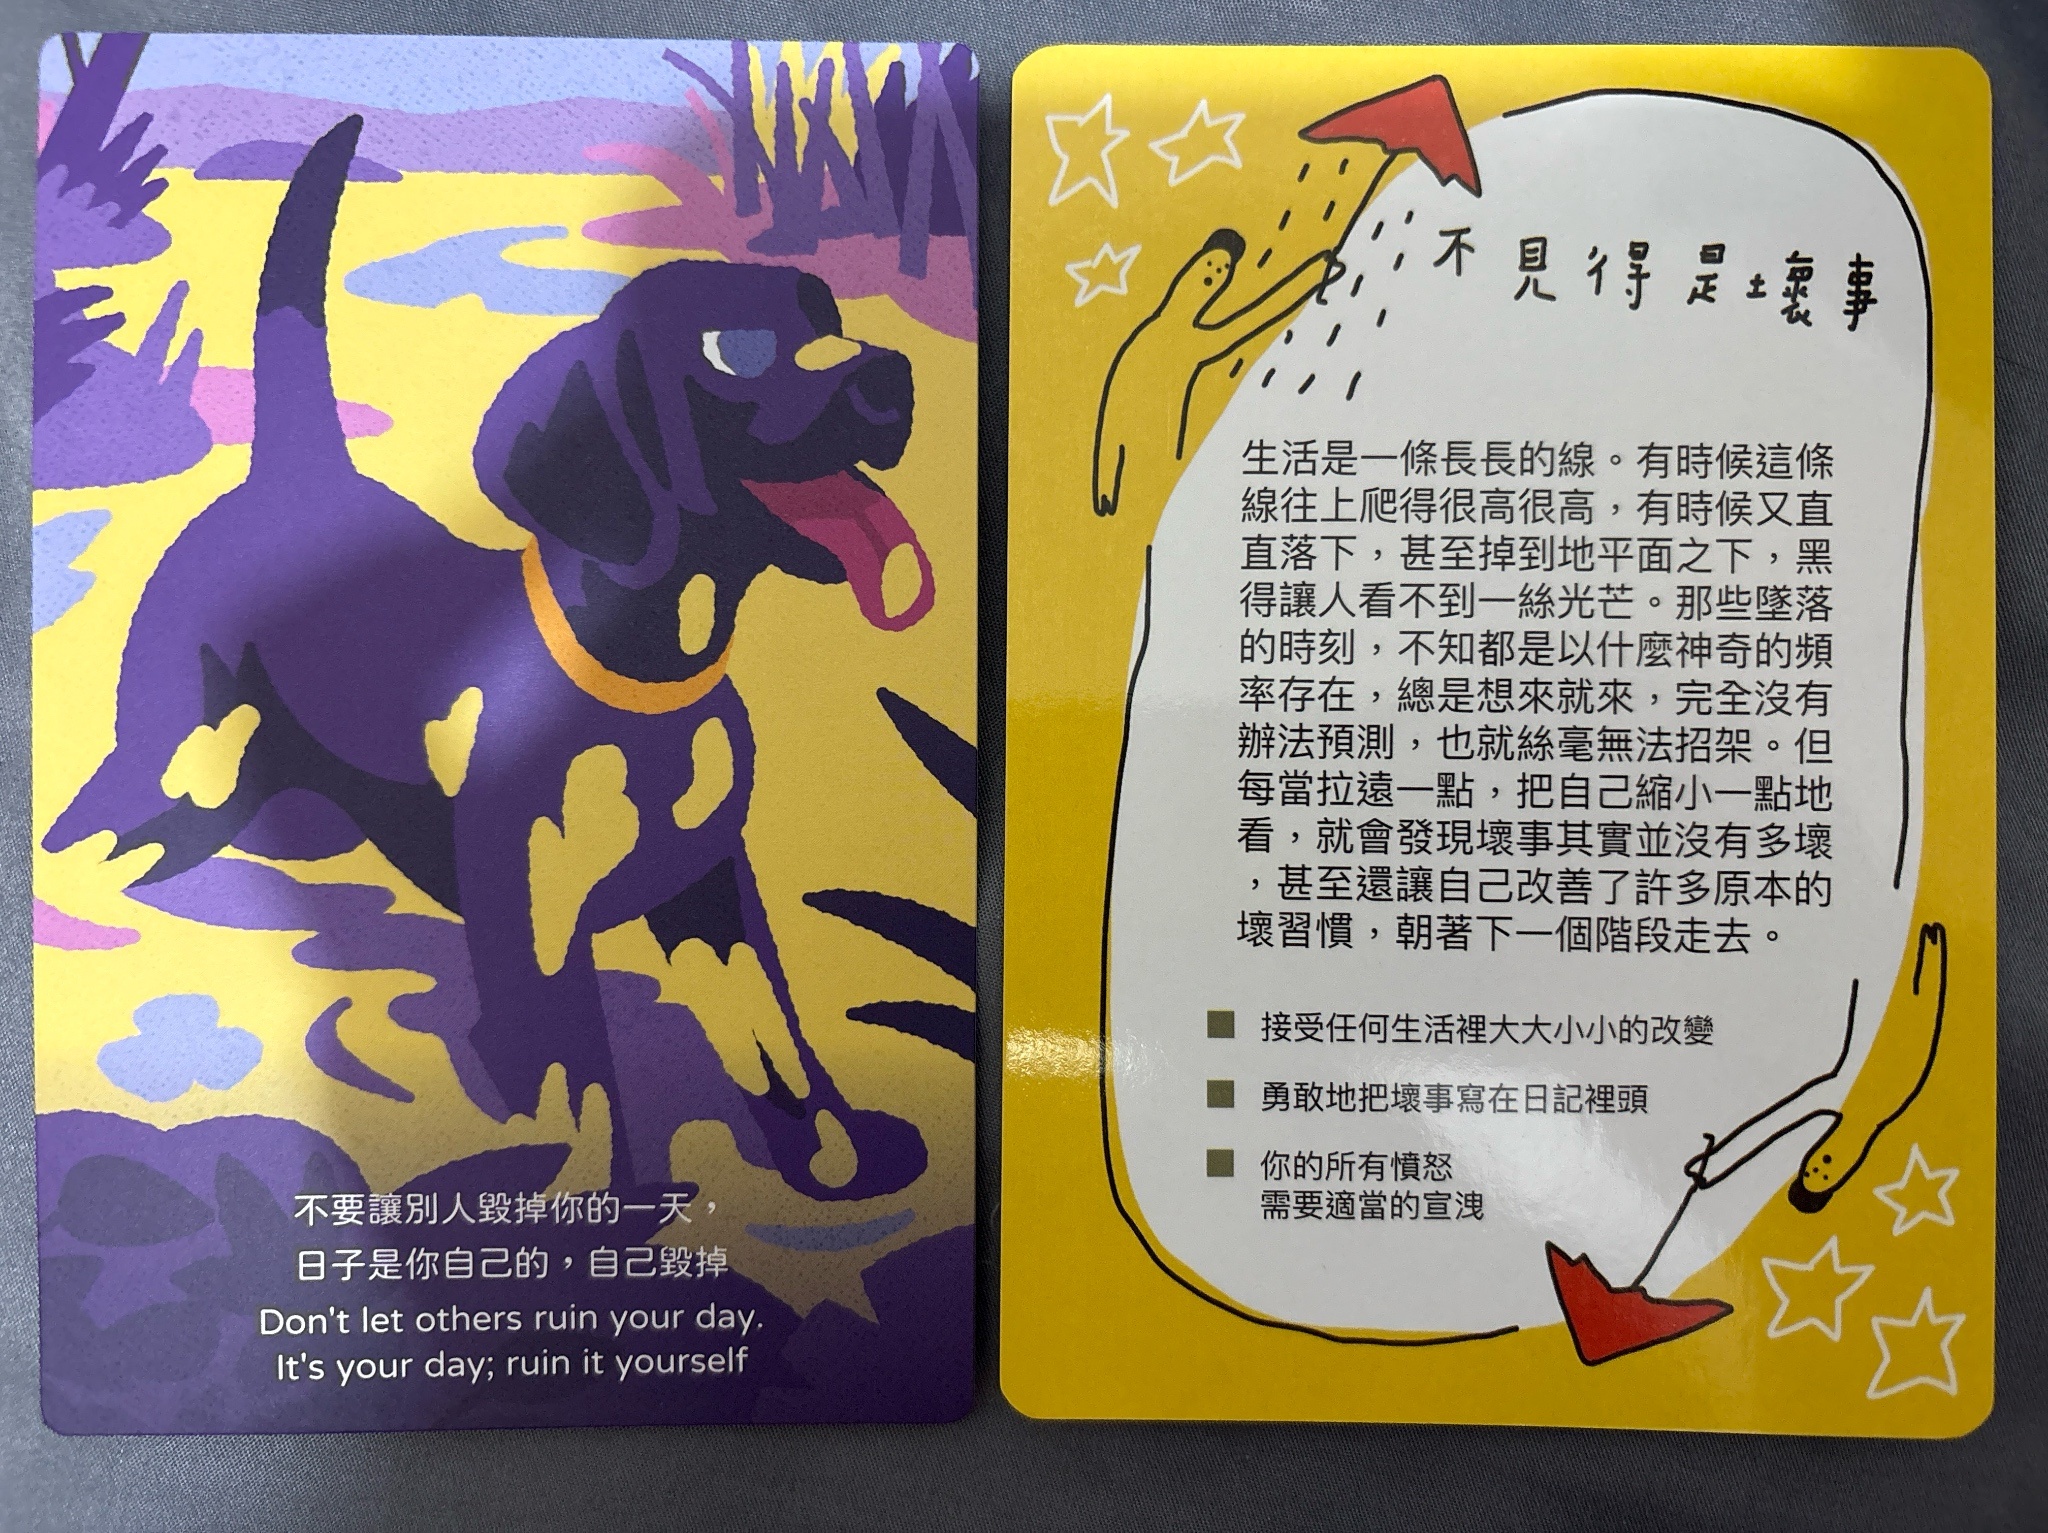 不要讓別人毀掉你的一天，
日子是你自己的，自己毀掉
Don't let others ruin your day.
It's your day; ruin it yourself
不見得是壞事
生活是一條長長的線。有時候這條
線往上爬得很高很高，有時候又直
直落下，甚至掉到地平面之下，黑
得讓人看不到一絲光芒。那些墜落
的時刻，不知都是以什麼神奇的頻
率存在，總是想來就來，完全沒有
辦法預測，也就絲毫無法招架。但
每當拉遠一點，把自己縮小一點地
看，就會發現壞事其實並沒有多壞
，甚至還讓自己改善了許多原本的
壞習慣，朝著下一個階段走去。
接受任何生活裡大大小小的改變
勇敢地把壞事寫在日記裡頭
你的所有憤怒
需要適當的宣洩